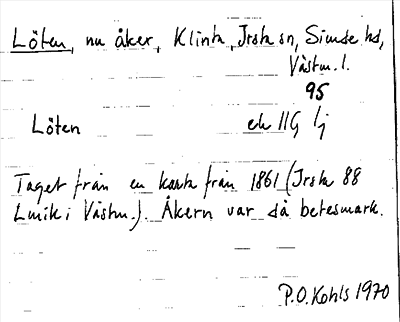 Löten, nu åker, Klinta, Irsta sn, Siende hd,
Västm. l.
95
Löten ek 11G lj
Taget från en karta från 1861 (Irsta 88
Lmk i Västm.). Åkern var då betesmark.
P.O. Kohls 1970